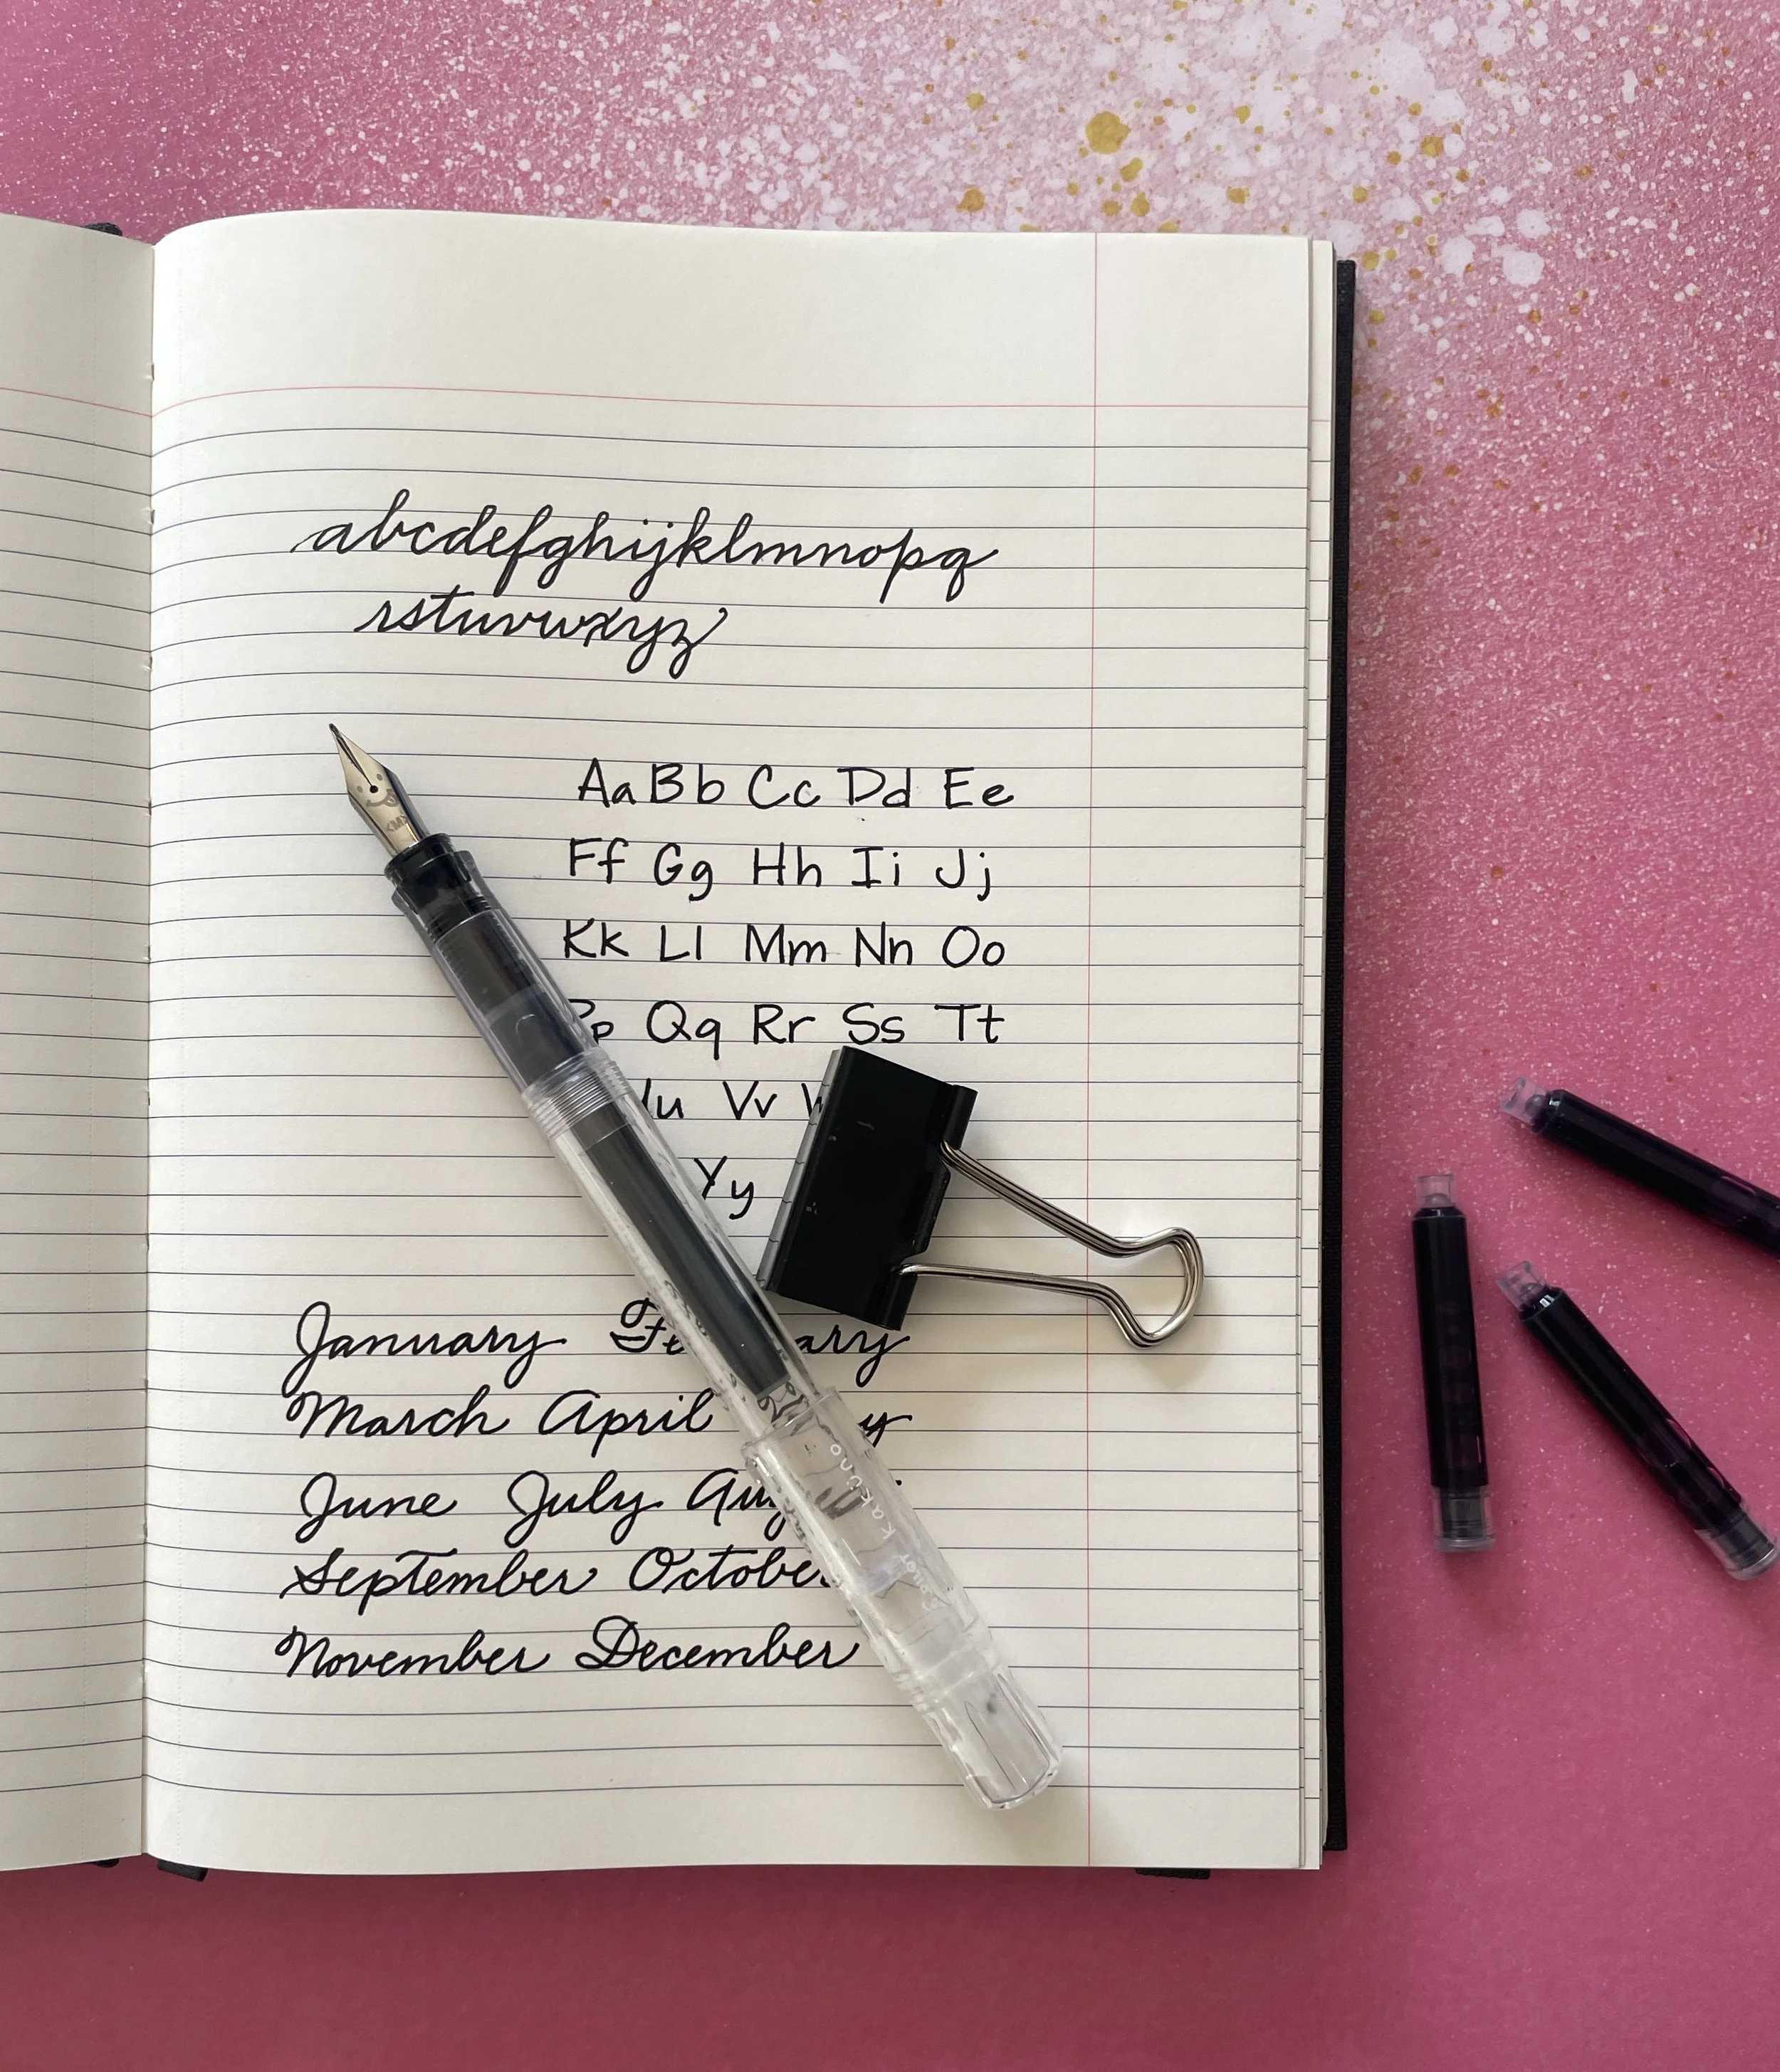 abcdefghijklmnopq
rstuvwxyz
Aa Bb Cc Dd Ee
Ff Gg Hh Ii Jj
Kk Ll Mm Nn Oo
p Qq Rr Ss Tt
u Vv
Yy
January
March April
June July
September October
November December
<M>
kakuno